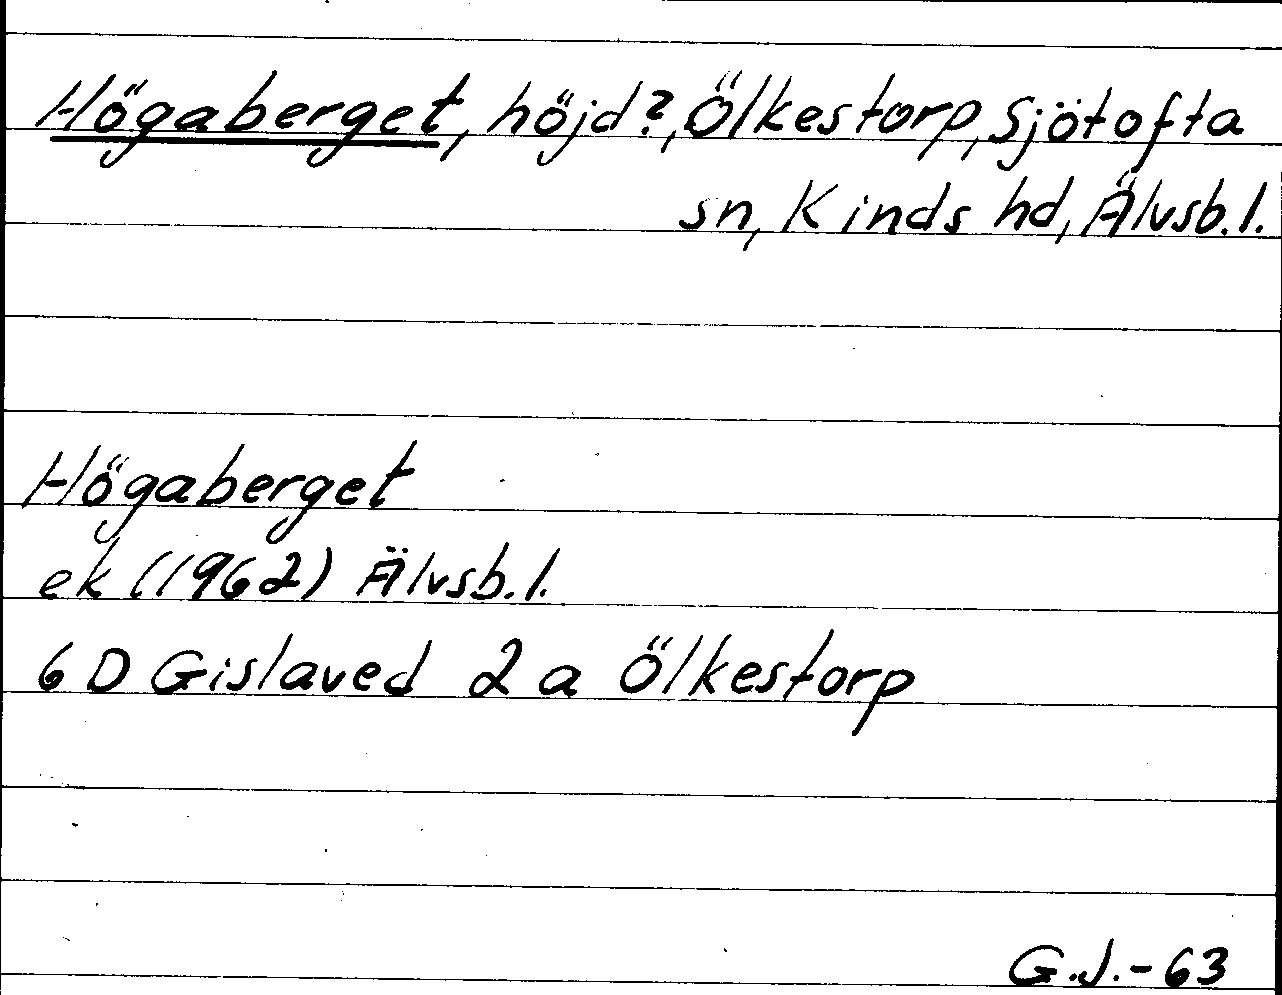 Högaberget, höjd?, Ölkestorp, Sjötofta
sn, Kinds hd, Älvsb.l.
Högaberget
ek (1962) Älvsb.l.
6 D Gislaved 2 a Ölkestorp
G.J.-63